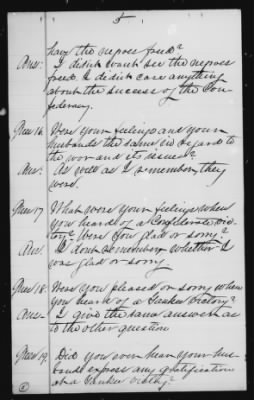 5
have the negroes freed?
Ans: I didn't want to see the negroes
freed. I didn't care anything
about the success of the Con-
federacy.
Ques 16 Were your feelings and your
husbands the same in regard to
the war and its issues?
Ans: As well as I remember, they
were.
Ques 17 What were your feelings when
you heard of a Confederate Vic-
tory? Were you glad or sorry?
Ans. I dont remember whether I
was glad or sorry.
Ques 18: Were you pleased or sorry when
you heard of a Yankee Victory?
Ans- I give the same answer as
to the other question
Ques 19. Did you ever hear your hus-
band express any gratification
at a Yankee Victory?